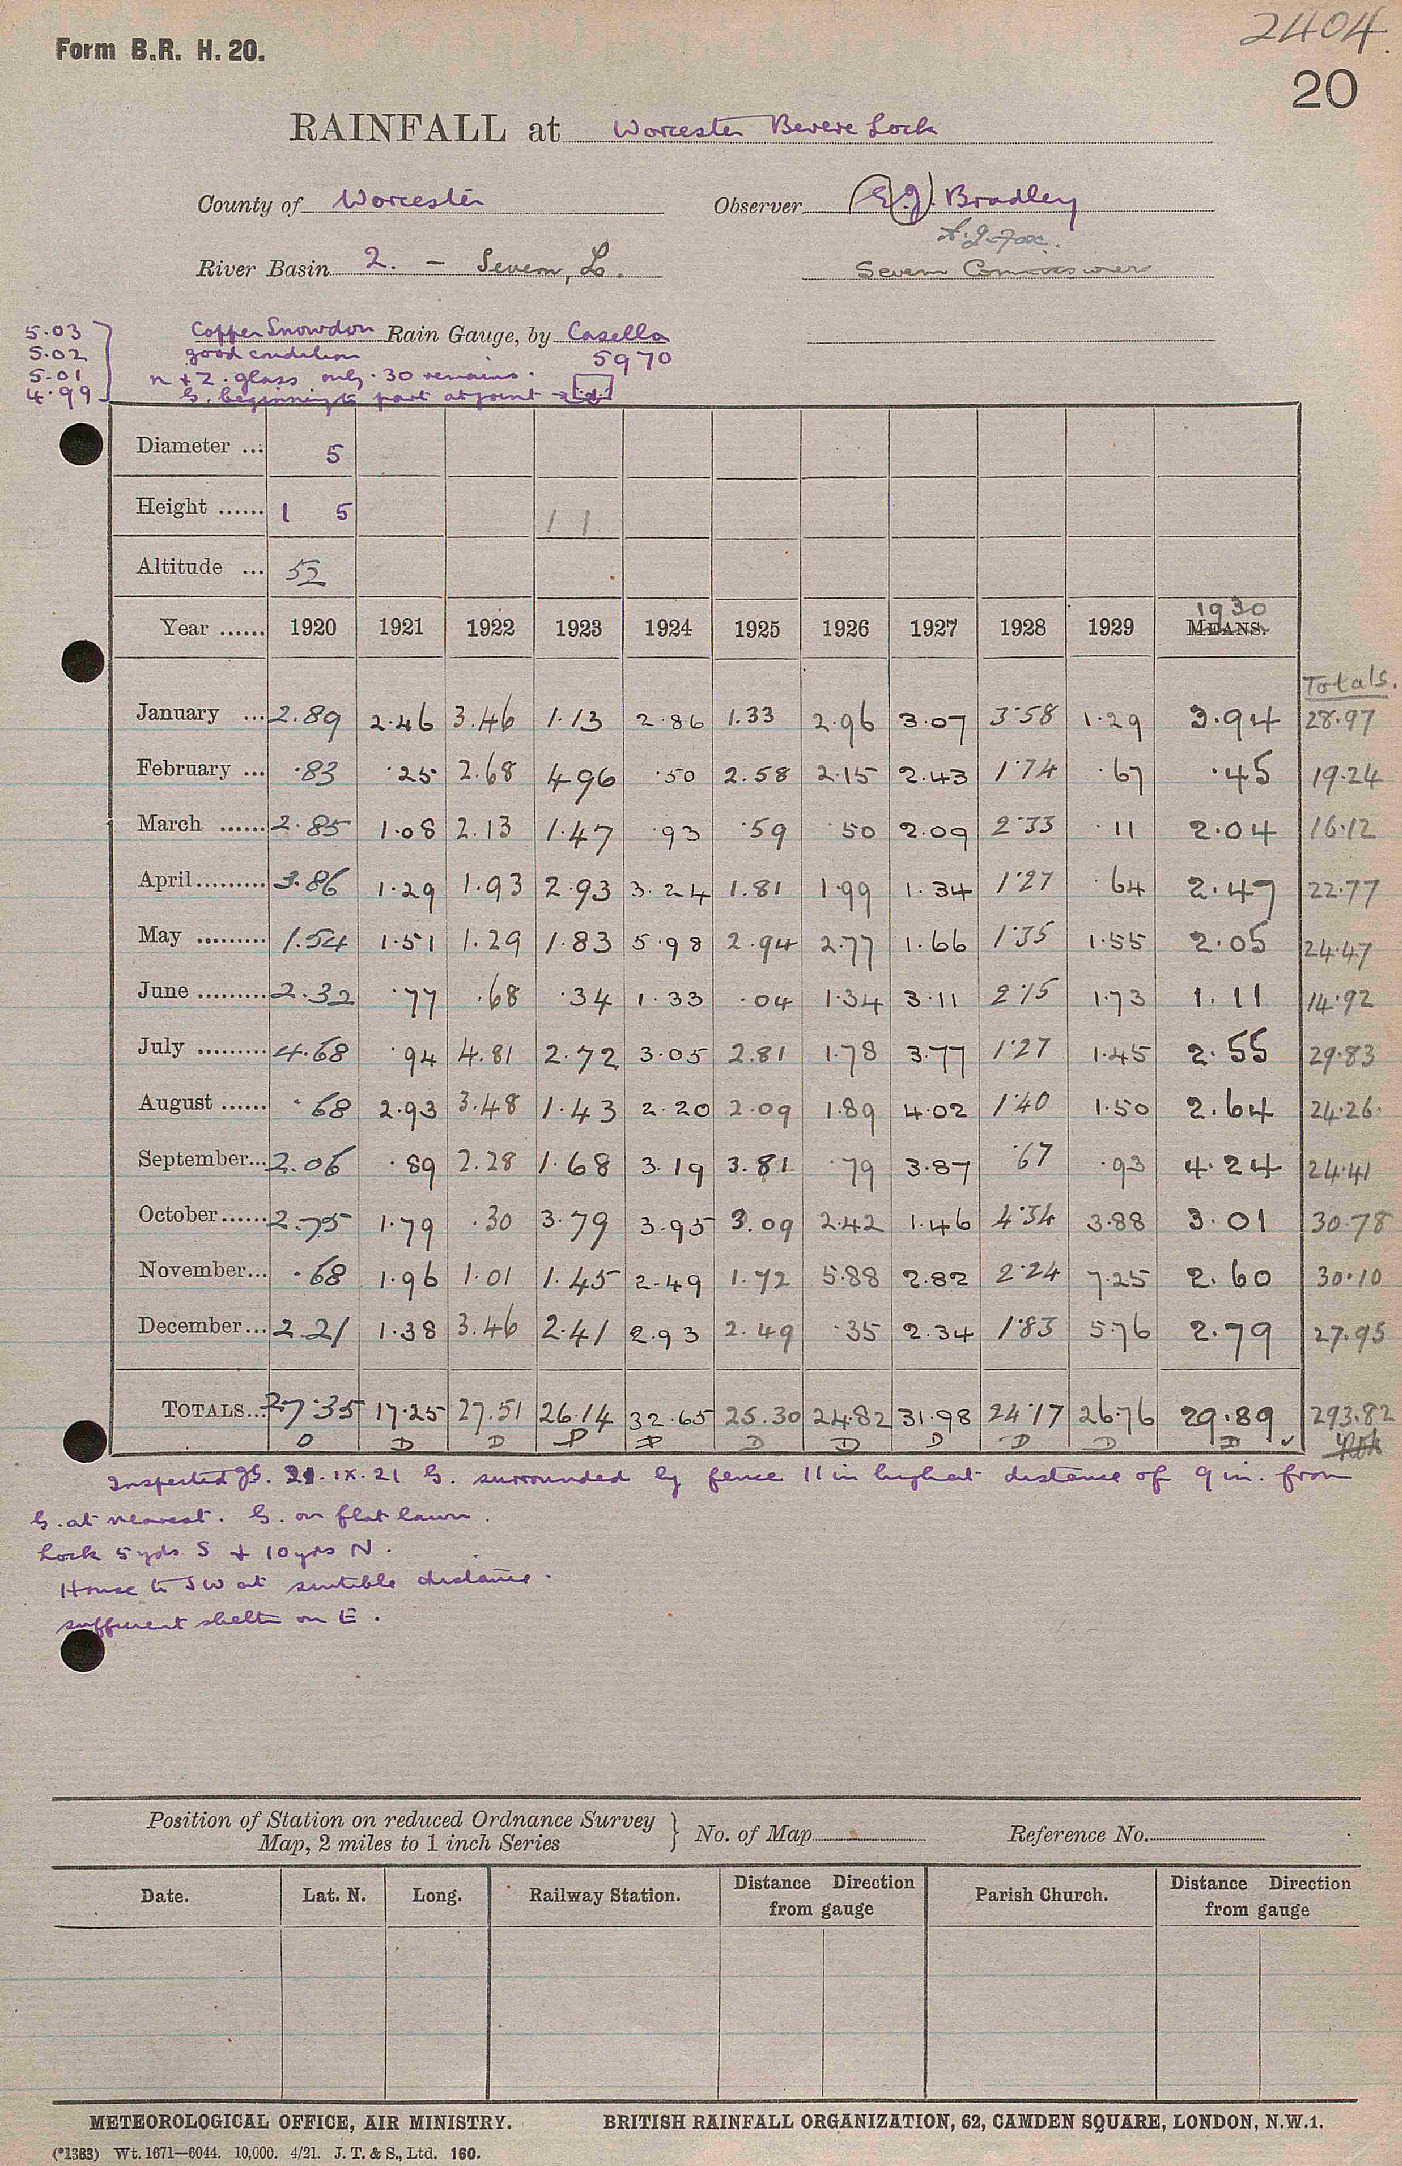 2404
Form B.R. H. 20.
20
RAINFALL at Worcester Bevere Lock
County of Worcester Observer E.J. Bradley
A.J. Fox.
River Basin 2. – Severn, L. Severn Commissioners
5.03 Copper Snowdon Rain Gauge, by Casella
5.02 good condition 5970
5.01 n + z. glass only .30 remains.
4.99 G. beginning to part at joint
Diameter ... 5
Height ...... 1 5 1 1
Altitude ... 52
1930
Year ...... 1920 1921 1922 1923 1924 1925 1926 1927 1928 1929 MEANS.
Totals.
January ... 2.89 2.46 3.46 1.13 2.86 1.33 2.96 3.07 3.58 1.29 3.94 28.97
February ... .83 .25 2.68 4.96 .50 2.58 2.15 2.43 1.74 .67 .45 19.24
March ...... 2.85 1.08 2.13 1.47 .93 .59 .50 2.09 2.33 .11 2.04 16.12
April......... 3.86 1.29 1.93 2.93 3.24 1.81 1.99 1.34 1.27 .64 2.47 22.77
May ......... 1.54 1.51 1.29 1.83 5.98 2.94 2.77 1.66 1.35 1.55 2.05 24.47
June ......... 2.32 .77 .68 .34 1.33 .04 1.34 3.11 2.15 1.73 1.11 14.92
July ......... 4.68 .94 4.81 2.72 3.05 2.81 1.78 3.77 1.27 1.45 2.55 29.83
August ...... .68 2.93 3.48 1.43 2.20 2.09 1.89 4.02 1.40 1.50 2.64 24.26
September... 2.06 .89 2.28 1.68 3.19 3.81 .79 3.87 .67 .93 4.24 24.41
October...... 2.75 1.79 .30 3.79 3.95 3.09 2.42 1.46 4.34 3.88 3.01 30.78
November... .68 1.96 1.01 1.45 2.49 1.72 5.88 2.82 2.24 7.25 2.60 30.10
December... 2.21 1.38 3.46 2.41 2.93 2.49 .35 2.34 1.83 5.76 2.79 27.95
TOTALS... 27.35 17.25 27.51 26.14 32.65 25.30 24.82 31.98 24.17 26.76 29.89 293.82
D D D D D D D D D D D ✓
Inspected 21.IX.21 G. surrounded by fence 11 in high at distance of 9 in. from
G. at nearest. G. on flat lawn.
Lock 5 yds S + 10 yds N.
House to SW at suitable distance.
sufficient shelter on E.
Position of Station on reduced Ordnance Survey
Map, 2 miles to 1 inch Series } No. of Map Reference No.
Date. Lat. N. Long. Railway Station. Distance Direction from gauge Parish Church. Distance Direction from gauge
METEOROLOGICAL OFFICE, AIR MINISTRY. BRITISH RAINFALL ORGANIZATION, 62, CAMDEN SQUARE, LONDON, N.W.1.
(*1383) Wt. 1671—6044. 10,000. 4/21. J. T. & S., Ltd. 160.